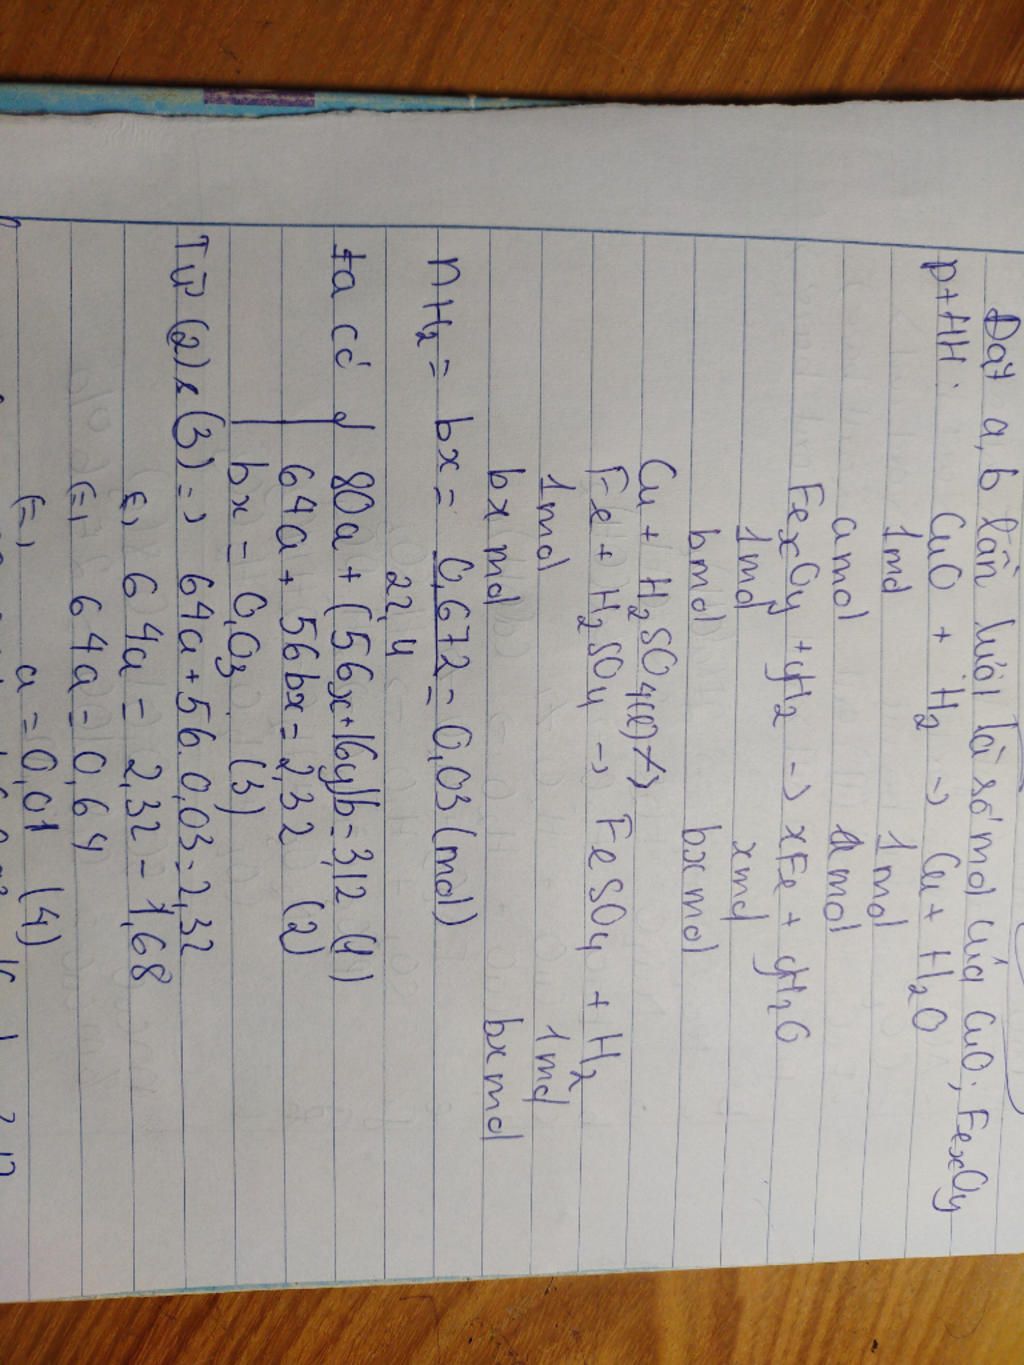 Đặt a, b lần lượt là số mol của CuO; FexOy
PTHH: CuO + H2 → Cu + H2O
1mol 1mol
amol amol
FexOy + yH2 → xFe + yH2O
1mol xmol
bmol bxmol
Cu + H2SO4(l) ↛
Fe + H2SO4 → FeSO4 + H2
1mol 1mol
bx mol bxmol
nH2 = bx = 0,672/22,4 = 0,03 (mol)
ta có { 80a + (56x+16y)b = 3,12 (1)
64a + 56bx = 2,32 (2)
bx = 0,03 (3)
Từ (2) & (3) => 64a + 56.0,03 = 2,32
(=) 64a = 2,32 - 1,68
(=) 64a = 0,64
(=) a = 0,01 (4)